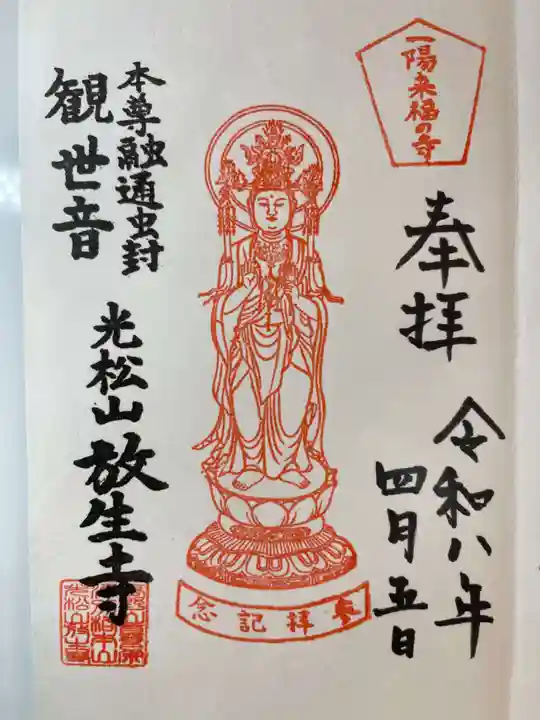 一陽来福の寺
奉拝
令和八年
四月五日
本尊融通虫封
観世音
光松山放生寺
参拝記念